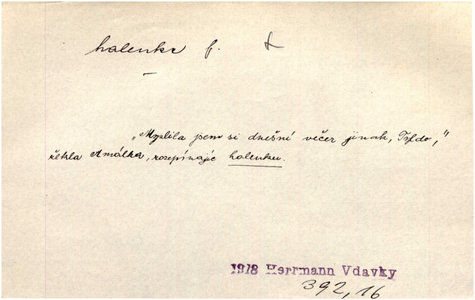 halenka f.
„Myslila jsem si dnešní večer jinak, Tyldo,"
řekla Amálka, rozepínajíc halenku.
1918 Herrmann Vdavky
392,16